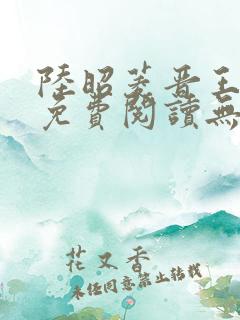 陸昭菱晉王
免費閱讀無
花又香
未经同意禁止转载